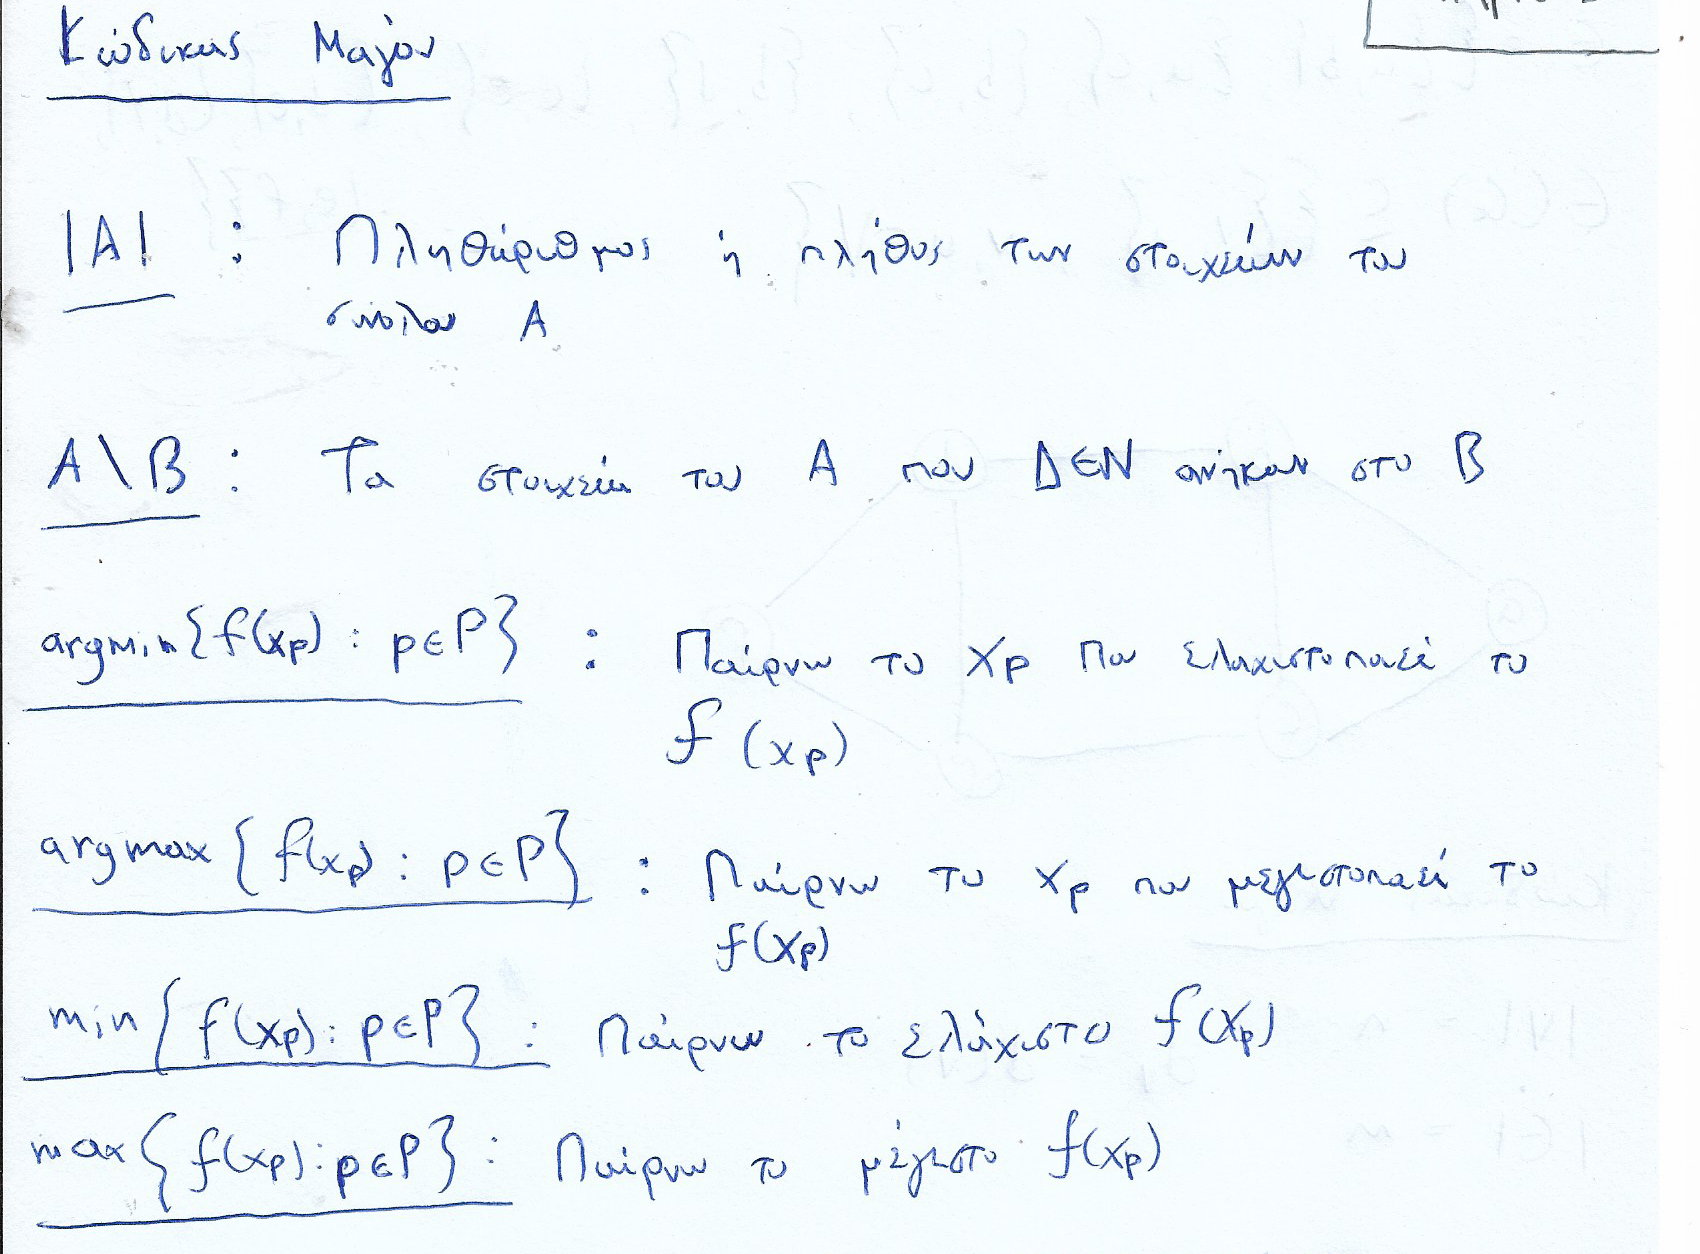 Κώδικας Μαγον
|A| : Πληθάριθμος ή πλήθος των στοιχείων του
συνόλου A
A\B : Τα στοιχεία του A που ΔΕΝ ανήκουν στο B
argmin{f(xp) : p∈P} : Παίρνω το xp που ελαχιστοποιεί το
f(xp)
argmax{f(xp) : p∈P} : Παίρνω το xp που μεγιστοποιεί το
f(xp)
min{f(xp) : p∈P} : Παίρνω το ελάχιστο f(xp)
max{f(xp) : p∈P} : Παίρνω το μέγιστο f(xp)